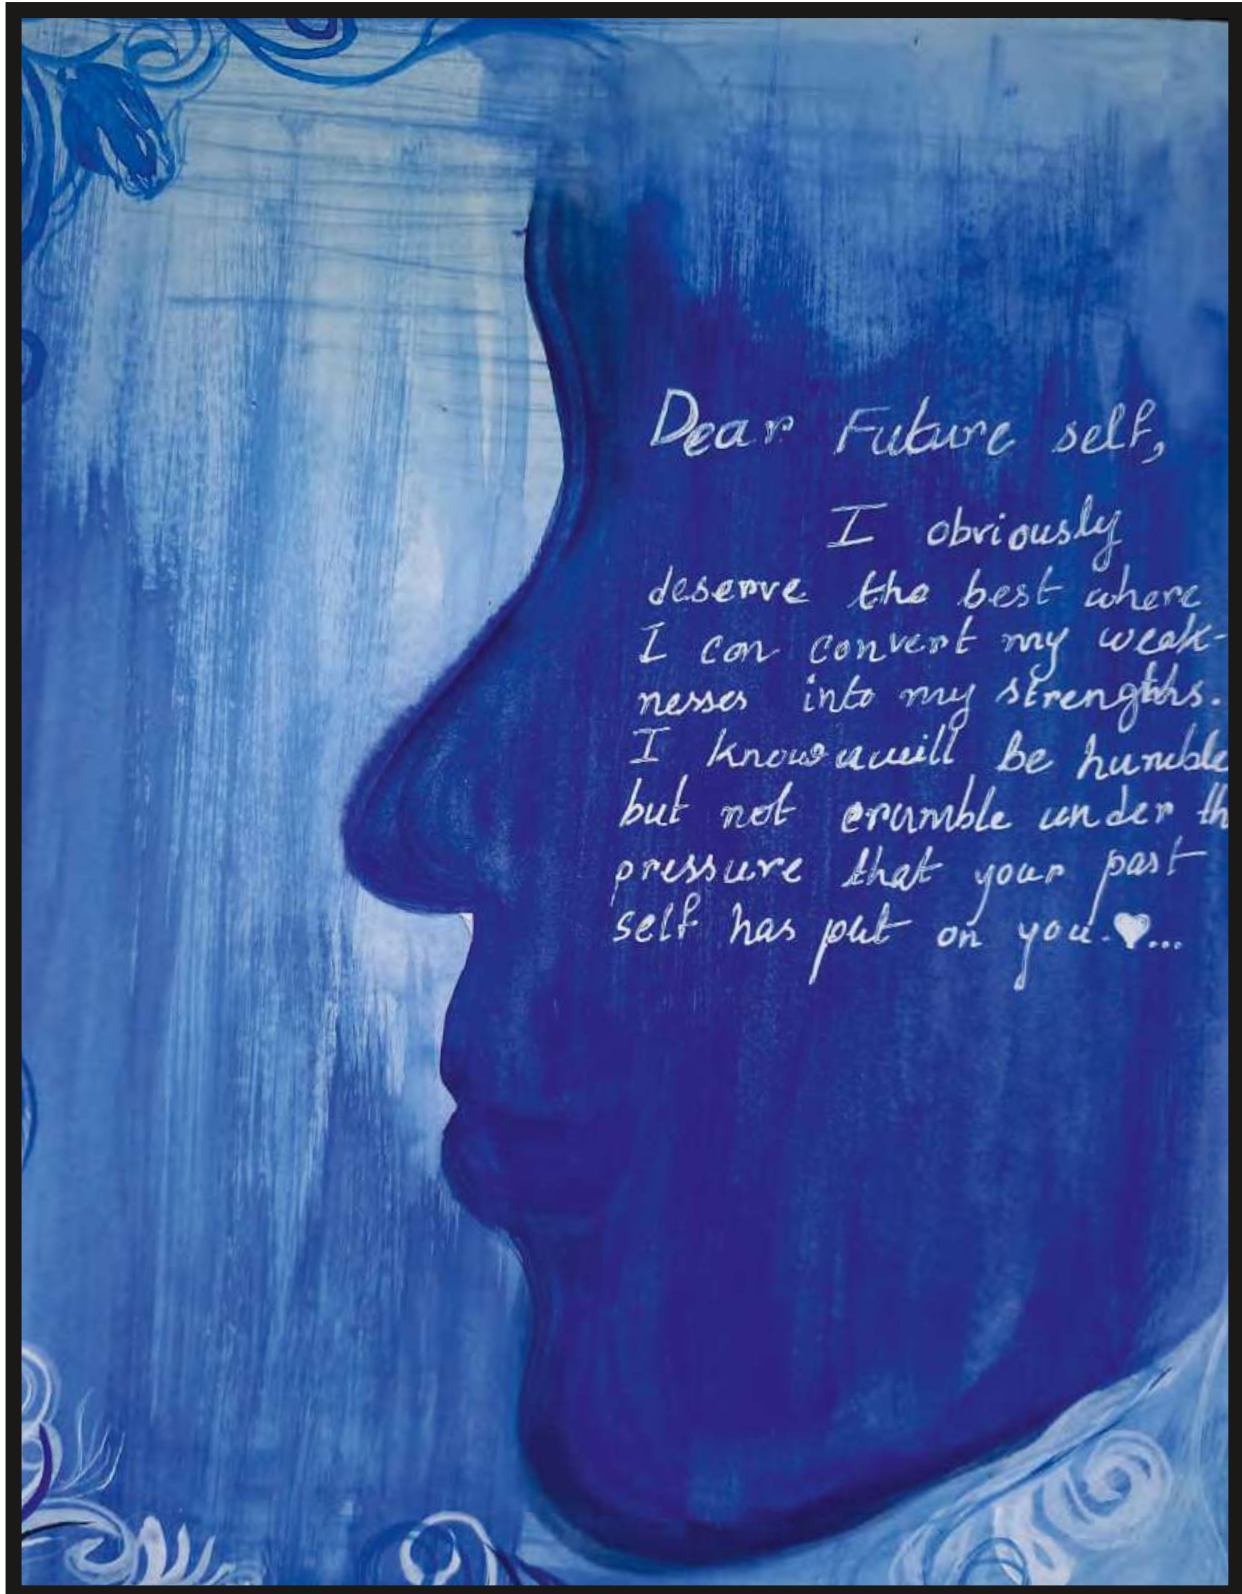 Dear Future self,
I obviously
deserve the best where
I can convert my weak-
nesses into my strengths.
I know will be humble
but not crumble under th
pressure that your past
self has put on you.♥...